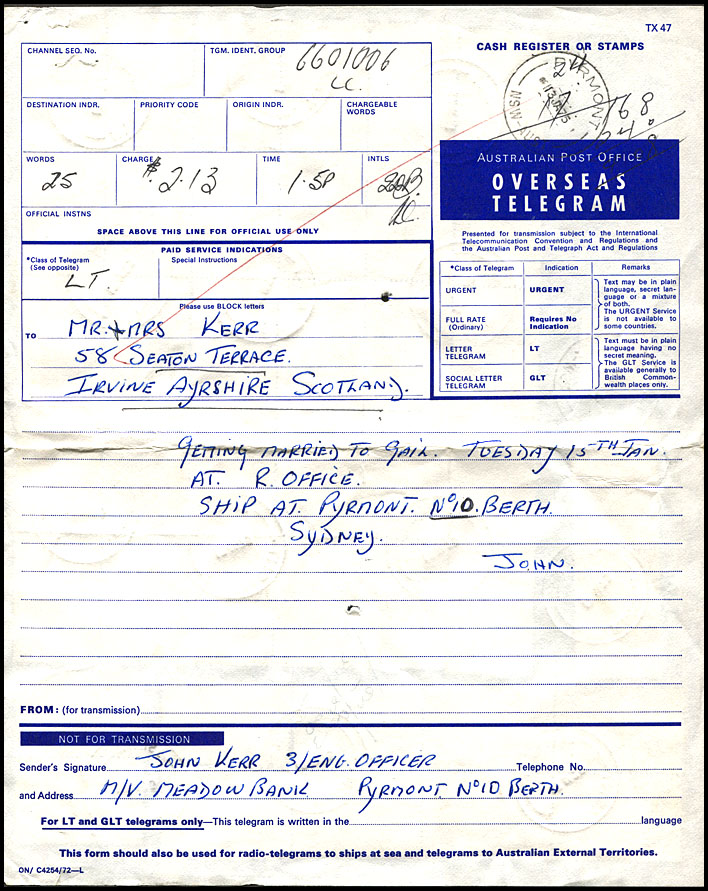 TX 47
CASH REGISTER OR STAMPS
CHANNEL SEQ. No.
TGM. IDENT. GROUP
6601006
LC.
DESTINATION INDR.
PRIORITY CODE
ORIGIN INDR.
CHARGEABLE WORDS
PYRMONT
WORDS
25
CHARGE
$2.13
TIME
1.5P
INTLS
OFFICIAL INSTNS
SPACE ABOVE THIS LINE FOR OFFICIAL USE ONLY
AUSTRALIAN POST OFFICE
OVERSEAS
TELEGRAM
Presented for transmission subject to the International
Telecommunication Convention and Regulations and
the Australian Post and Telegraph Act and Regulations
PAID SERVICE INDICATIONS
*Class of Telegram
(See opposite)
LT.
Special Instructions
*Class of Telegram
Indication
Remarks
URGENT
URGENT
FULL RATE
(Ordinary)
Requires No
Indication
Text may be in plain
language, secret lan-
guage or a mixture
of both.
The URGENT Service
is not available to
some countries.
LETTER
TELEGRAM
LT
SOCIAL LETTER
TELEGRAM
GLT
Text must be in plain
language having no
secret meaning.
The GLT Service is
available generally to
British Common-
wealth places only.
Please use BLOCK letters
TO
MR. + MRS KERR
58 SEATON TERRACE.
IRVINE AYRSHIRE SCOTLAND.
GETTING MARRIED TO GAIL. TUESDAY 15TH JAN.
AT. R. OFFICE.
SHIP AT PYRMONT. Nº10. BERTH.
SYDNEY.
JOHN.
FROM: (for transmission)
NOT FOR TRANSMISSION
Sender's Signature JOHN KERR 3/ENG. OFFICER Telephone No.
and Address M/V. MEADOWBANK PYRMONT. Nº10 BERTH.
For LT and GLT telegrams only—This telegram is written in the language
This form should also be used for radio-telegrams to ships at sea and telegrams to Australian External Territories.
ON/ C4254/72—L